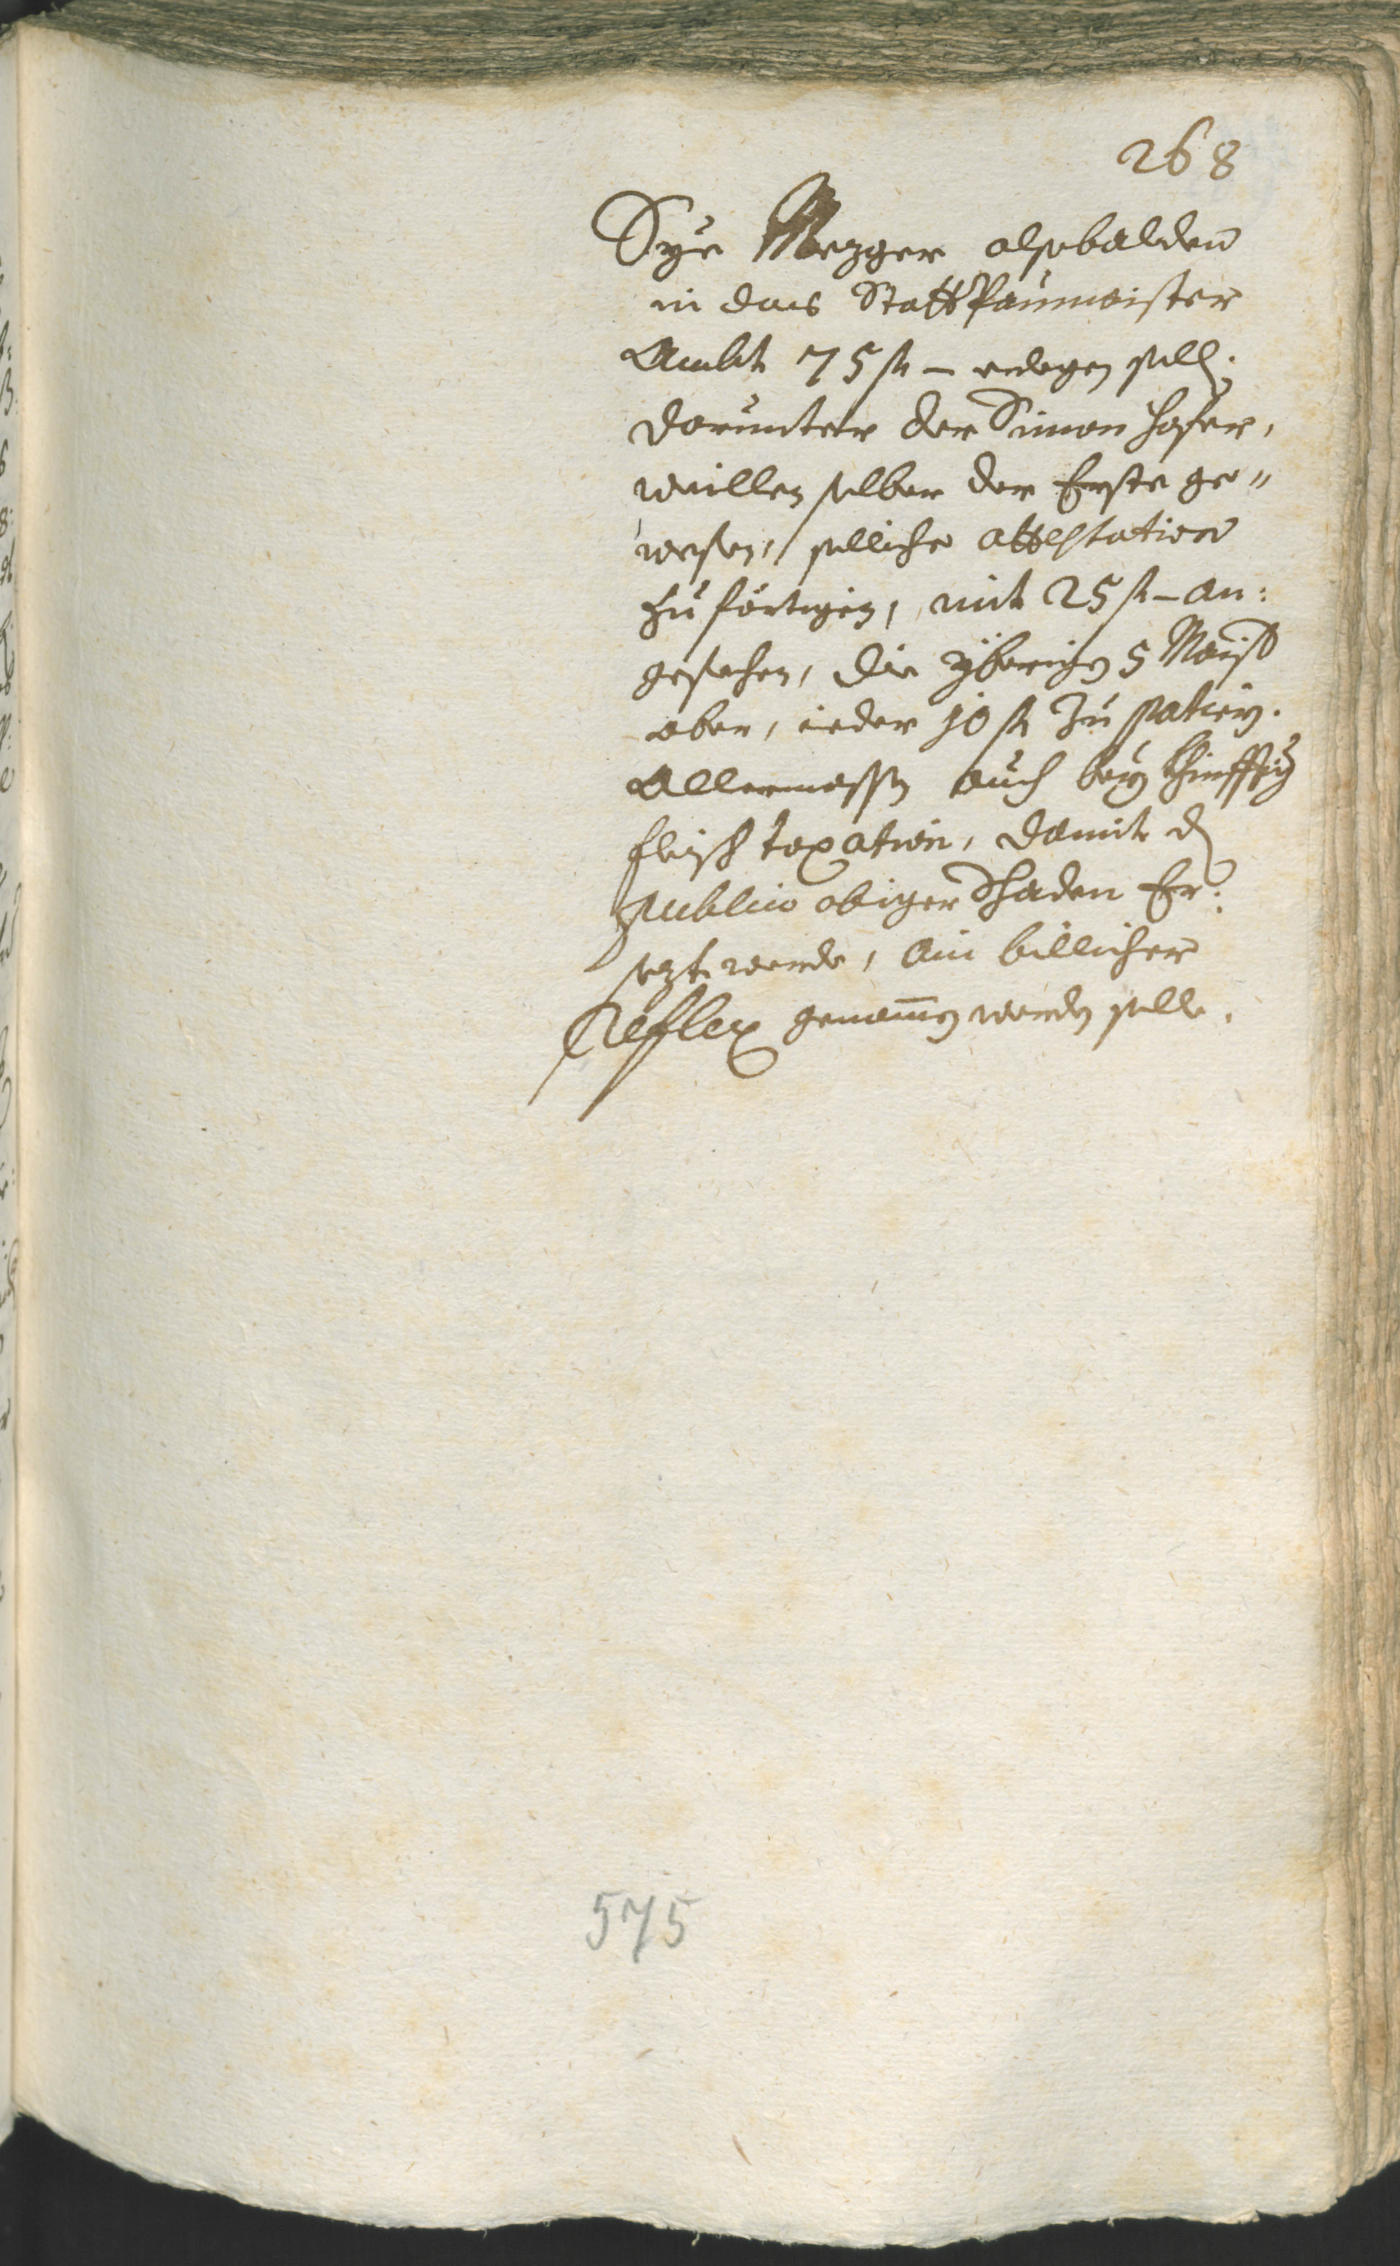 268
Sÿe Mezger alsobalden
in das StattPaumaister
Ambt 75 fl – erlegen solln.
darunter der Simon Hofer,
weillen selber der Erste ge„
wesen, solliche attestation
zu förtigen, mit 25 fl – an:
gesehen, die yberigen 5 Maist
aber, ieder 10 fl zu
Allermassen auch bey khinfftig
fleisch taxation, damit dem
publico obiger Schaden Er:
sezt werde, ain billicher
Reflex genommen werden solle.
575